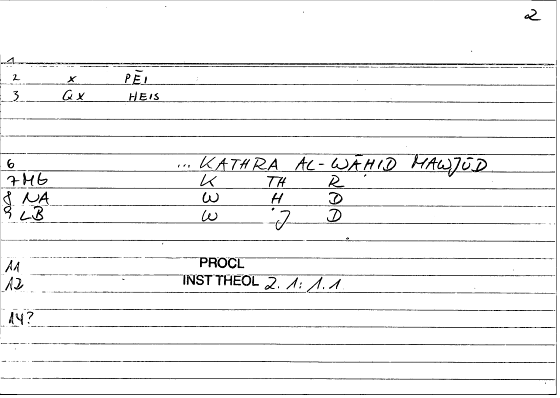 2
1
2 x PĒI
3 QX HEIS
6 ... KATHRA AL-WĀḤID MAWJŪD
7 MG K TH R
8 NA W Ḥ D
9 LB W J D
11 PROCL
12 INST THEOL 2. 1: 1. 1
14?